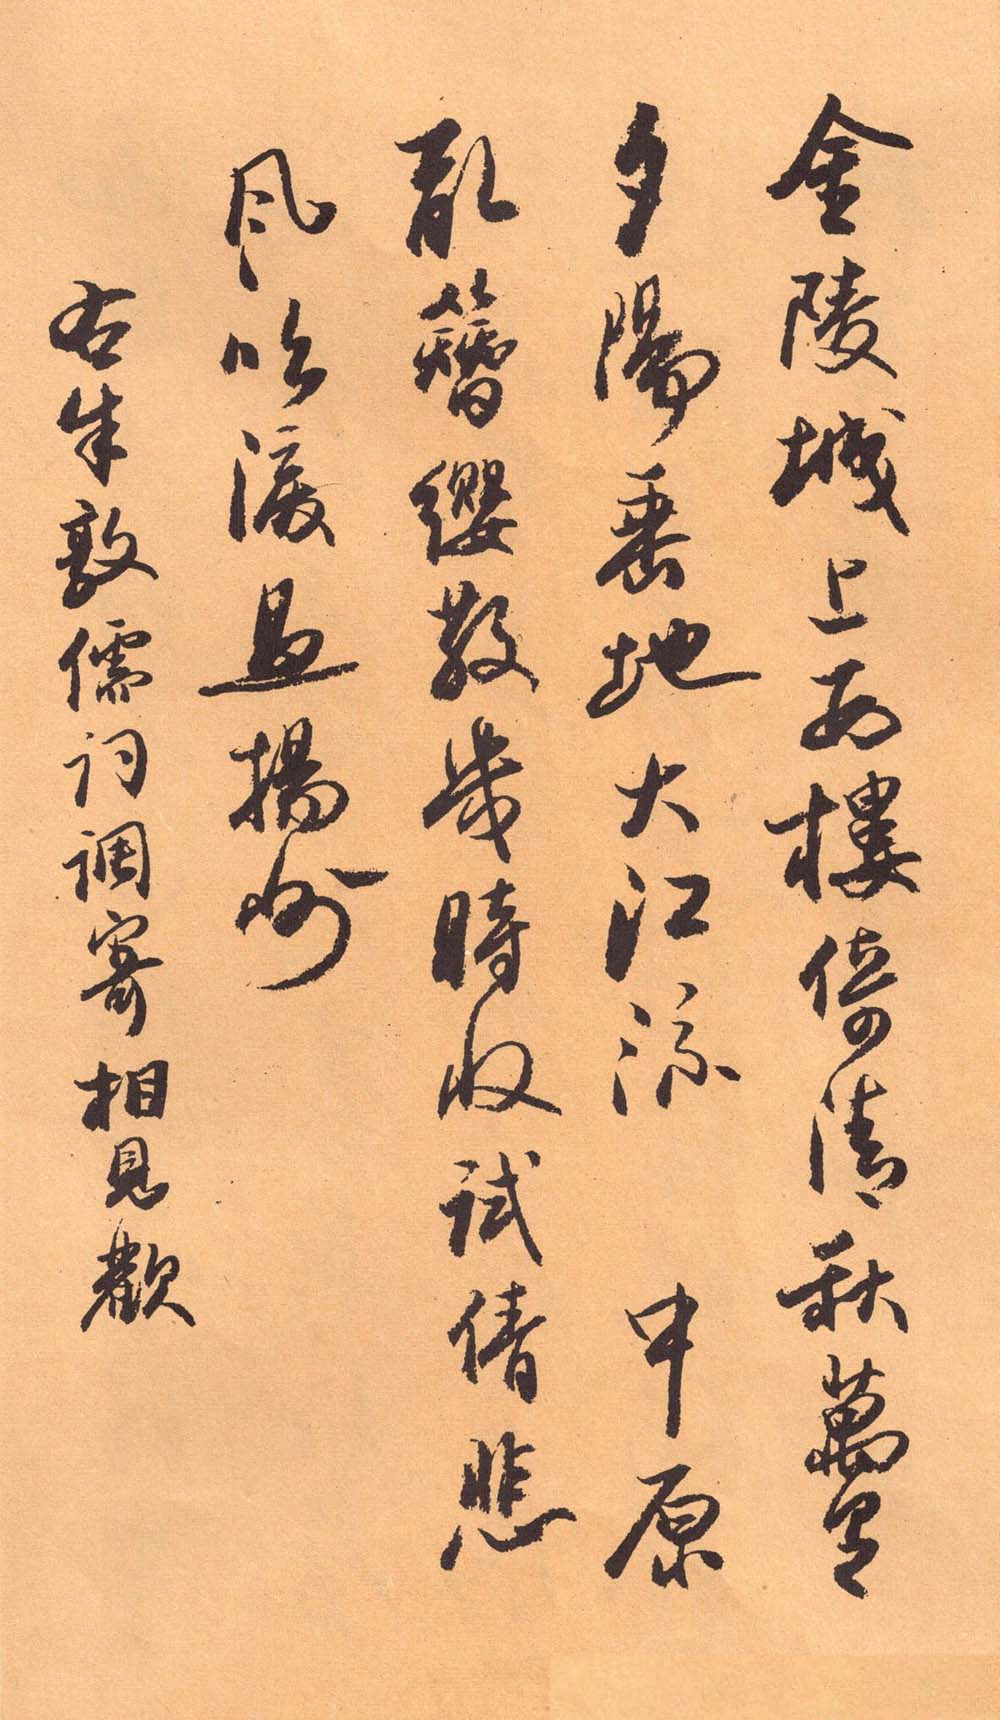 金陵城上西樓倚清秋萬里
夕陽垂地大江流　中原
亂簪纓散幾時收試倩悲
風吹淚過揚州
右朱敦儒詞調寄相見歡